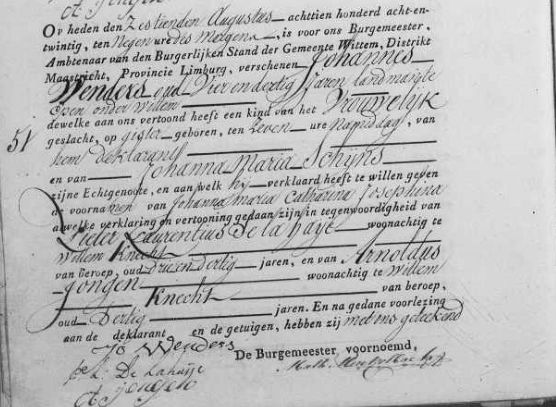 Op heden den Zestienden Augustus achttien honderd acht-en-
twintig, ten Negen ure des Morgens, is voor ons Burgemeester,
Ambtenaar van den Burgerlijken Stand der Gemeente Wittem, Distrikt
Maastricht, Provincie Limburg, verschenen Johannes
Wenders oud Vier en dertig Jaren landmaigte
open onder willem
dewelke aan ons vertoond heeft een kind van het Vrouwelyk
geslacht, op gister geboren, ten zeven ure namiddag, van
51
hem deklarant
en van Johanna Maria Schijns
zijne Echtgenoote, en aan welk hij verklaard heeft te willen geven
de voornamen van Johanna Maria Catharina Josephina
dewelke verklaring en vertooning gedaan zijn in tegenwoordigheid van
Pieter Laurentius De la Haye woonachtig te
Willem Knecht
van beroep, oud Drie en Dertig jaren, en van Arnoldus
Jongen woonachtig te Willem
Knecht van beroep,
oud Dertig jaren. En na gedane voorlezing
aan de deklarant en de getuigen, hebben zij met ons geteekend
Jo Wenders
De Burgemeester, voornoemd,
p. L. De Lahaije
A Jongen